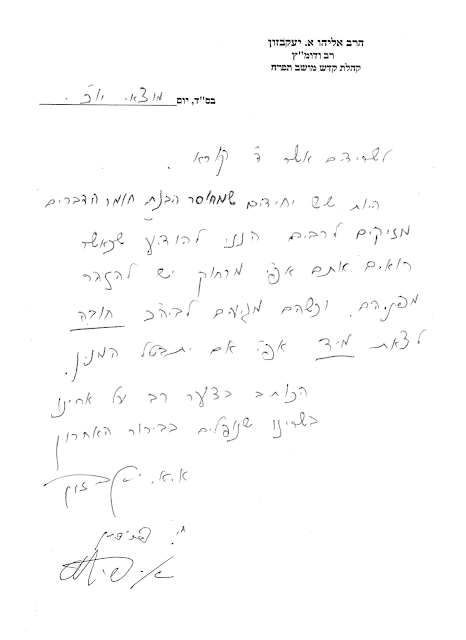 הרב אליהו א. יעקבזון
רב ודומ"ץ
קהלת קדש מושב תפרח
בס"ד, יום מוצא. יוכ.
לשרידים אשר ד' קורא.
היות שש יחידים שמחוסר הבנת חומר הדברים
מזיקים לרבים הנני להודיע שכאשר
רואים אתם אפי' מרחוק יש להזהר
מפניהם. וכשהם מגיעים לביהכ חובה
לצאת מיד אפי' אם יתבטל המנין.
הכותב בצער רב על אחינו
בשרינו שנופלים בבירור האחרון
א.א. יעקבזון